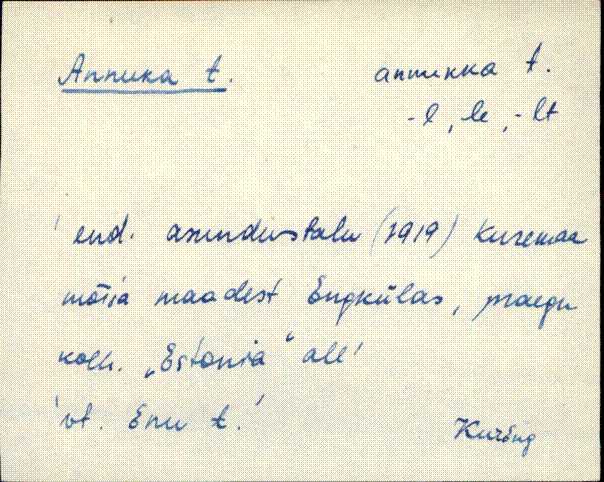 Annuka t. annukka t.
-l, -le, -lt
' end. asundustalu (1919) Kuremaa
mõisa maadest Õngkülas, praegu
kolh. „Estonia" all'
'vt. Õnu t.'
Kurõng